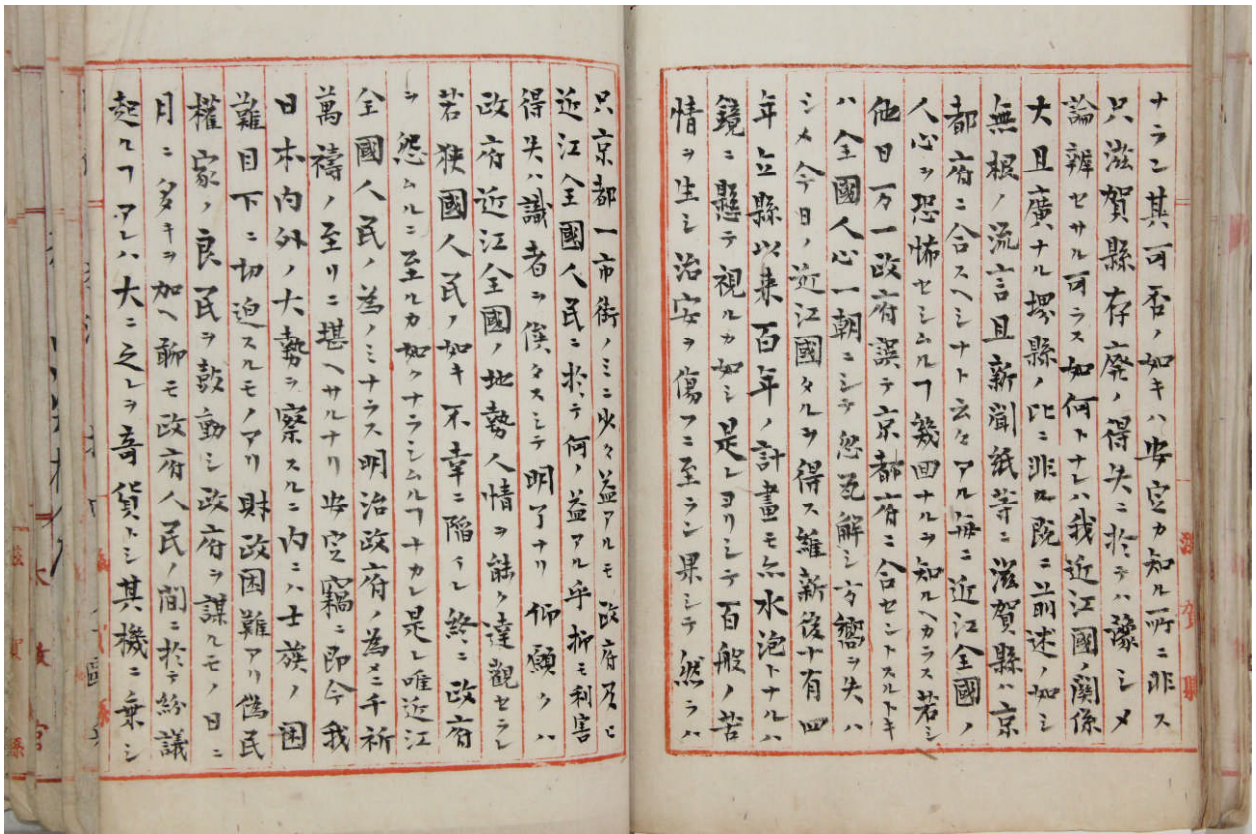 ナラン其可否ノ如キハ安定カ知ル所ニ非ス
只滋賀縣存廃ノ得失ニ於テハ豫シメ
論辨セサル可ラス如何トナレハ我近江國ノ関係
大且廣ナル堺縣ノ比ニ非ル既ニ前述ノ如シ
無根ノ流言且新聞紙等ニ滋賀縣ハ京
都府ニ合スヘシナト云々アル毎ニ近江全國ノ
人心ヲ恐怖セシムルヿ幾回ナルヲ知ルヘカラス若シ
他日万一政府誤テ京都府ニ合セントスルトキ
ハ全國人心一朝ニシテ忽瓦解シ方嚮ヲ失ハ
シメ今日ノ近江國タルヲ得ス維新後十有四
年立縣以来百年ノ計畫モ亦水泡トナルハ
鏡ニ懸テ視ルカ如シ是レヨリシテ百般ノ苦
情ヲ生シ治安ヲ傷フニ至ラン果シテ然ラハ
只京都一市街ノミニ少々益アルモ政府及ヒ
近江全國人民ニ於テ何ノ益アル乎抑モ利害
得失ハ識者ヲ俟タスシテ明了ナリ仰願クハ
政府近江全國ノ地勢人情ヲ能ク達観セラレ
若狭國人民ノ如キ不幸ニ陥ラレ終ニ政府
ヲ怨ムルニ至ルカ如クナラシムルヿナカレ是レ唯近江
全國人民ノ為ノミナラス明治政府ノ為メニ千祈
萬禱ノ至リニ堪ヘサルナリ安定竊ニ即今我
日本内外ノ大勢ヲ察スルニ内ニハ士族ノ困
難目下ニ切迫スルモノアリ財政困難アリ偽民
權家ノ良民ヲ鼓動シ政府ヲ謀ルモノ日ニ
月ニ多キヲ加ヘ聊モ政府人民ノ間ニ於テ紛議
起ルヿアレハ大ニ之レヲ奇貨トシ其機ニ乗シ
滋賀縣